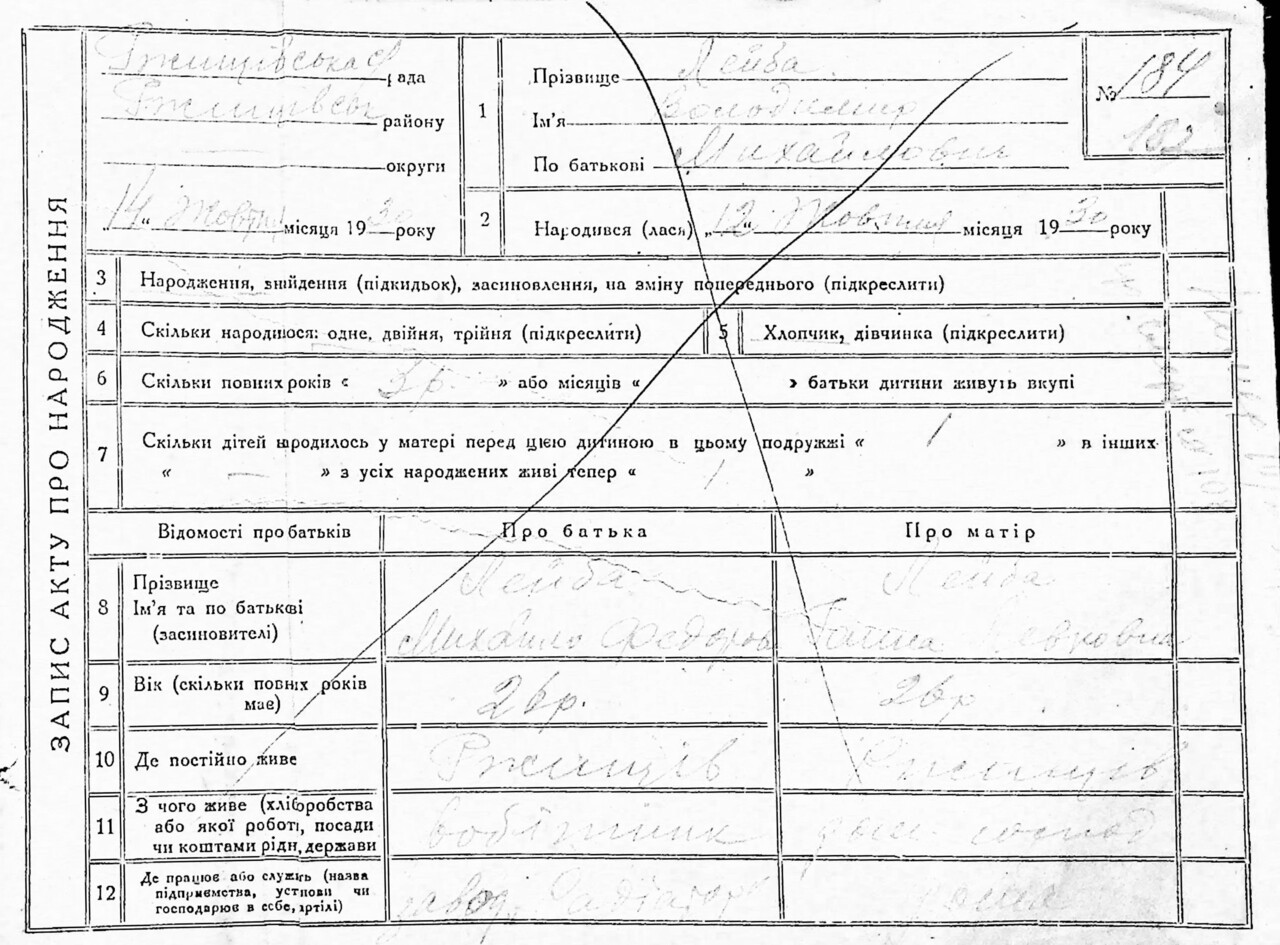 ЗАПИС АКТУ ПРО НАРОДЖЕННЯ
Ржищівська рада
Ржищівськ району
округи
"14" Жовтня місяця 1930 року
1
Прізвище Лейба
Ім'я Володимир
По батькові Михайлович
№ 184
182
2
Народився (лася) "12" Жовтня місяця 1930 року
3 Народження, знайдення (підкидьок), засиновлення, на зміну попереднього (підкреслити)
4 Скільки народилося: одне, двійня, трійня (підкреслити)
5 Хлопчик, дівчинка (підкреслити)
6 Скільки повних років « 3 р. » або місяців « » батьки дитини живуть вкупі
7 Скільки дітей народилось у матері перед цією дитиною в цьому подружжі « 1 » в інших
« — » з усіх народжених живі тепер « 1 »
Відомості про батьків Про батька Про матір
8 Прізвище
Ім'я та по батькові
(засиновителі)
Лейба
Михайло Федоров
Лейба
Ганна
9 Вік (скільки повних років
має)
26 р. 26 р
10 Де постійно живе Ржищів Ржищів
11 З чого живе (хліборобства
або якої роботі, посади
чи коштами рідн, держави
дом. господ
12 Де працює або служить (назва
підприємства, установи чи
господарює в себе, артілі)
завод Радіатор